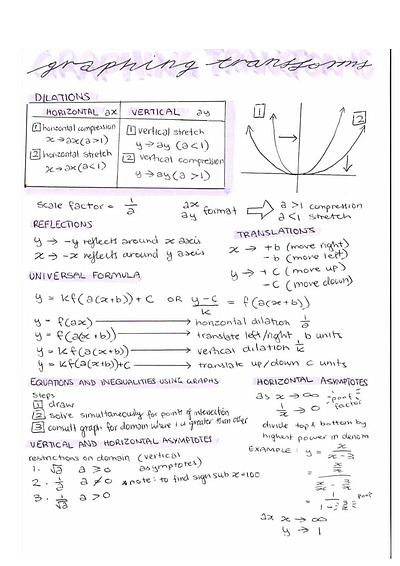 graphing transforms
DILATIONS
HORIZONTAL ax
VERTICAL ay
1 horizontal compression
x → ax (a>1)
2 horizontal stretch
x → ax (a<1)
1 vertical stretch
y → ay (a<1)
2 vertical compression
y → ay (a>1)
1
2
scale factor = 1/a
ax
ay format ⇒ a>1 compression
a<1 stretch
REFLECTIONS
y → -y reflects around x axis
x → -x reflects around y axis
TRANSLATIONS
x → +b (move right)
-b (move left)
y → +c (move up)
-c (move down)
UNIVERSAL FORMULA
y = kf(a(x+b))+c OR y-c/k = f(a(x+b))
y = f(ax) → horizontal dilation 1/a
y = f(a(x+b)) → translate left/right b units
y = kf(a(x+b)) → vertical dilation 1/k
y = kf(a(x+b))+c → translate up/down c units
EQUATIONS AND INEQUALITIES USING GRAPHS
steps
1 draw
2 solve simultaneously for points of intersection
3 consult graph for domain where 1 is greater than other
VERTICAL AND HORIZONTAL ASYMPTOTES
restrictions on domain (vertical asymptotes)
1. √a a ≥ 0
2. 1/a a ≠ 0 * note: to find sign sub x=100
3. 1/√a a > 0
HORIZONTAL ASYMPTOTES
as x → ∞
1/x → 0
factor
divide top & bottom by
highest power in denom
EXAMPLE: y = x/x-3
as x → ∞
y → 1